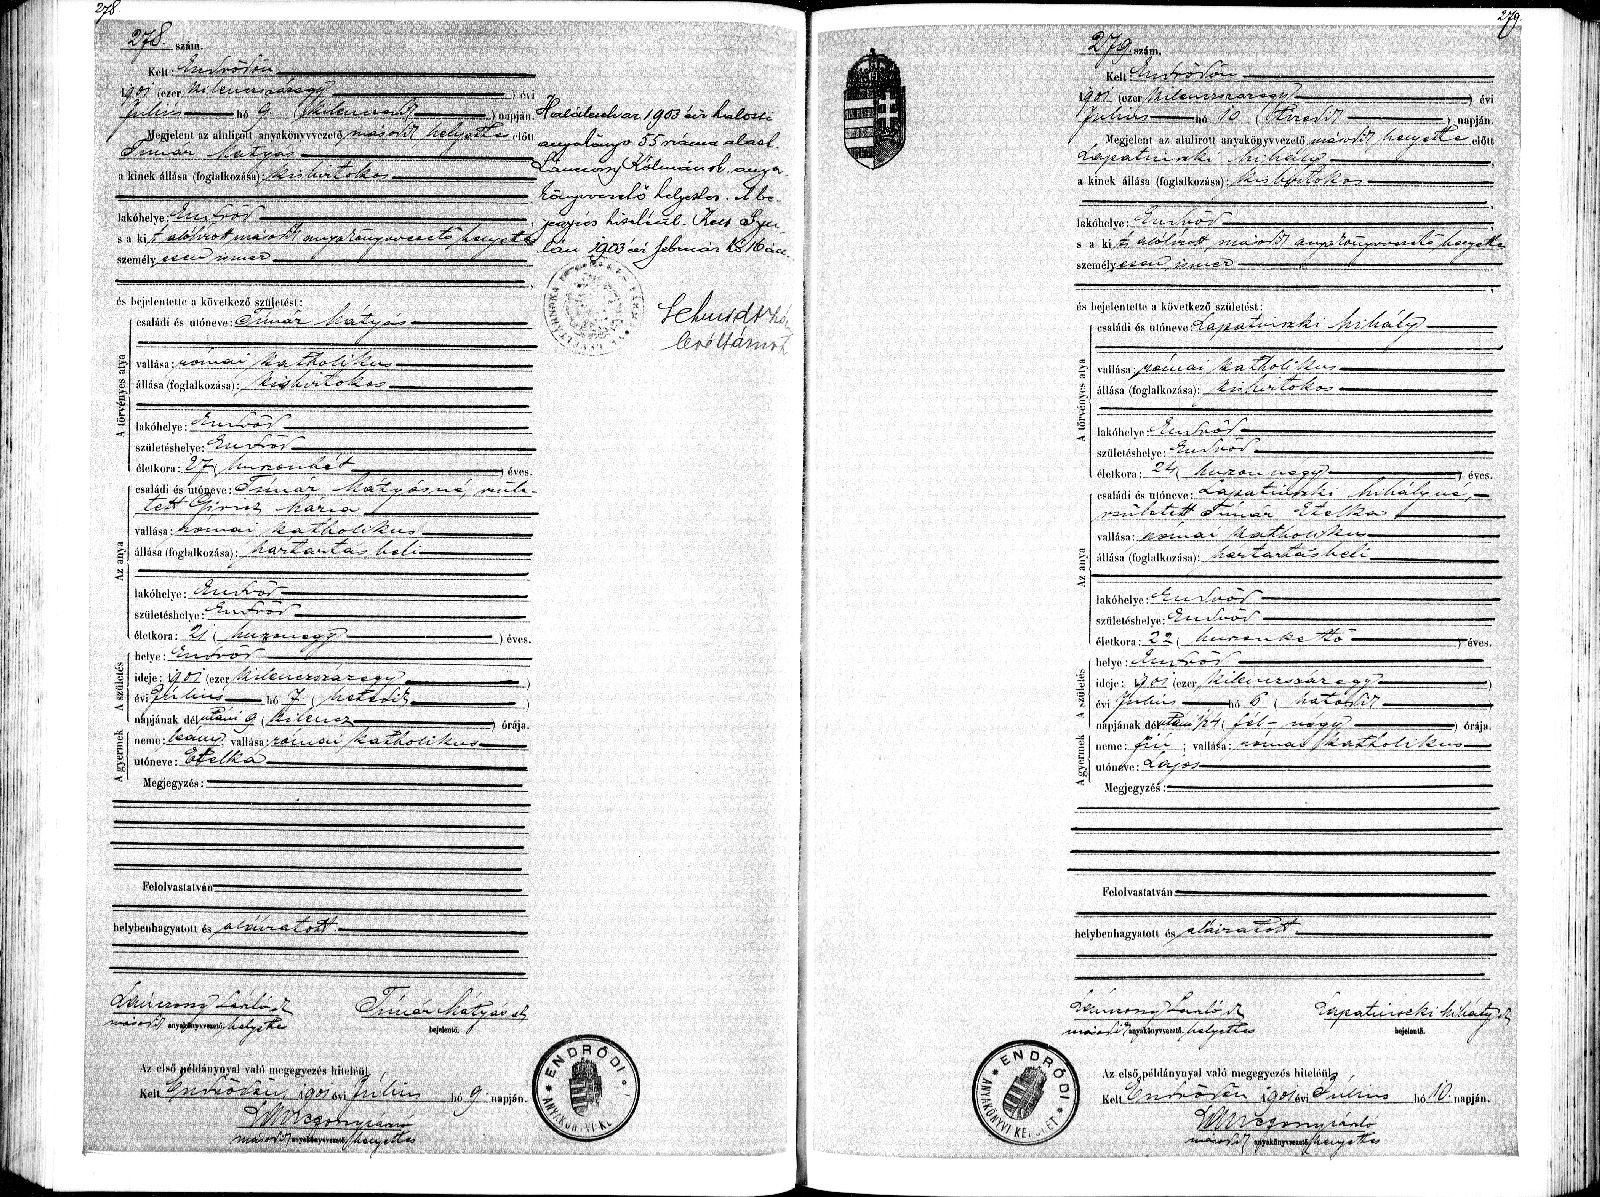 278
278. szám.
Kelt: Endrődön
1901 (ezer kilenczszázegy) évi
Július hó 9. (kilenczedik) napján.
Megjelent az alulirott anyakönyvvezető második helyettes előtt
Tímár Mátyás
a kinek állása (foglalkozása): kisbirtokos
lakóhelye: Endrőd
s a kit alólirott második anyakönyvvezető helyettes
személyesen ismer
és bejelentette a következő születést:
A törvényes atya
családi és utóneve: Tímár Mátyás
vallása: római katholikus
állása (foglalkozása): kisbirtokos
lakóhelye: Endrőd
születéshelye: Endrőd
életkora: 27 (huszonhét) éves.
Az anya
családi és utóneve: Tímár Mátyásné, szüle-
tett Mária
vallása: római katholikus
állása (foglalkozása): háztartásbeli
lakóhelye: Endrőd
születéshelye: Endrőd
életkora: 21 (huszonegy) éves.
A születés
helye: Endrőd
ideje: 1901 (ezer kilenczszázegy)
évi Július hó 7 (hetedik)
napjának délutáni 9 (kilencz) órája.
A gyermek
neme: leány; vallása: római katholikus
utóneve: Etelka
Megjegyzés:
Felolvastatván
helybenhagyatott és aláíratott
második anyakönyvvezető helyettes
Tímár Mátyás
bejelentő.
Az első példánynyal való megegyezés hiteléül.
Kelt Endrődön, 1901 évi Július hó 9. napján.
második anyakönyvvezető helyettes
ENDRŐDI
ANYAKÖNYVI KE
Haláleset az 1903 évi halotti
anyakönyv 55 száma alatt.
Kálmán anya-
könyvvezető helyettes. A be-
jegyzés hiteléül. Kelt Gyu-
lán 1903 évi február hó 16 án.
Schmidt
levéltárnok
279
279. szám.
Kelt Endrődön
1901 (ezer kilenczszázegy) évi
Július hó 10 (tizedik) napján.
Megjelent az alulirott anyakönyvvezető második helyettes előtt
Lapatinszki Mihály
a kinek állása (foglalkozása): kisbirtokos
lakóhelye: Endrőd
s a kit alólirott második anyakönyvvezető helyettes
személyesen ismer
és bejelentette a következő születést:
A törvényes atya
családi és utóneve: Lapatinszki Mihály
vallása: római katholikus
állása (foglalkozása): kisbirtokos
lakóhelye: Endrőd
születéshelye: Endrőd
életkora: 24 (huszonnégy) éves.
Az anya
családi és utóneve: Lapatinszki Mihályné,
született Tímár Etelka
vallása: római katholikus
állása (foglalkozása): háztartásbeli
lakóhelye: Endrőd
születéshelye: Endrőd
életkora: 22 (huszonkettő) éves.
A születés
helye: Endrőd
ideje: 1901 (ezer kilenczszázegy)
évi Július hó 6 (hatodik)
napjának délutáni 1/24 (fél-négy) órája.
A gyermek
neme: fiú; vallása: római katholikus
utóneve: Lajos
Megjegyzés:
Felolvastatván
helybenhagyatott és aláíratott
második anyakönyvvezető helyettes
Lapatinszki Mihály
bejelentő.
Az első példánynyal való megegyezés hiteléül.
Kelt Endrődön 1901 évi Július hó 10. napján.
második anyakönyvvezető helyettes
ENDRŐDI
ANYAKÖNYVI KERÜLET